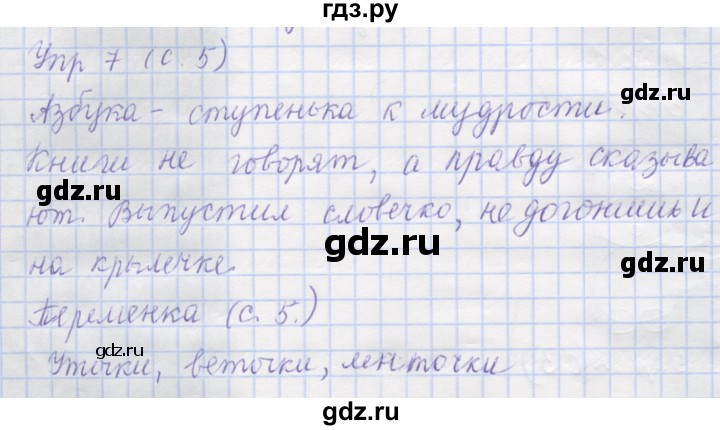 гдз.ру
Упр 7 (с. 5)
Азбука - ступенька к мудрости.
Книги не говорят, а правду сказыва
gdz.ru
gdz.ru
ют. Выпустил словечко, не догонишь и
gdz.ru
gdz.ru
на крылечке.
Переменка (с. 5.)
gdz.ru
gdz.ru
Уточки, веточки, ленточки
gdz.ru